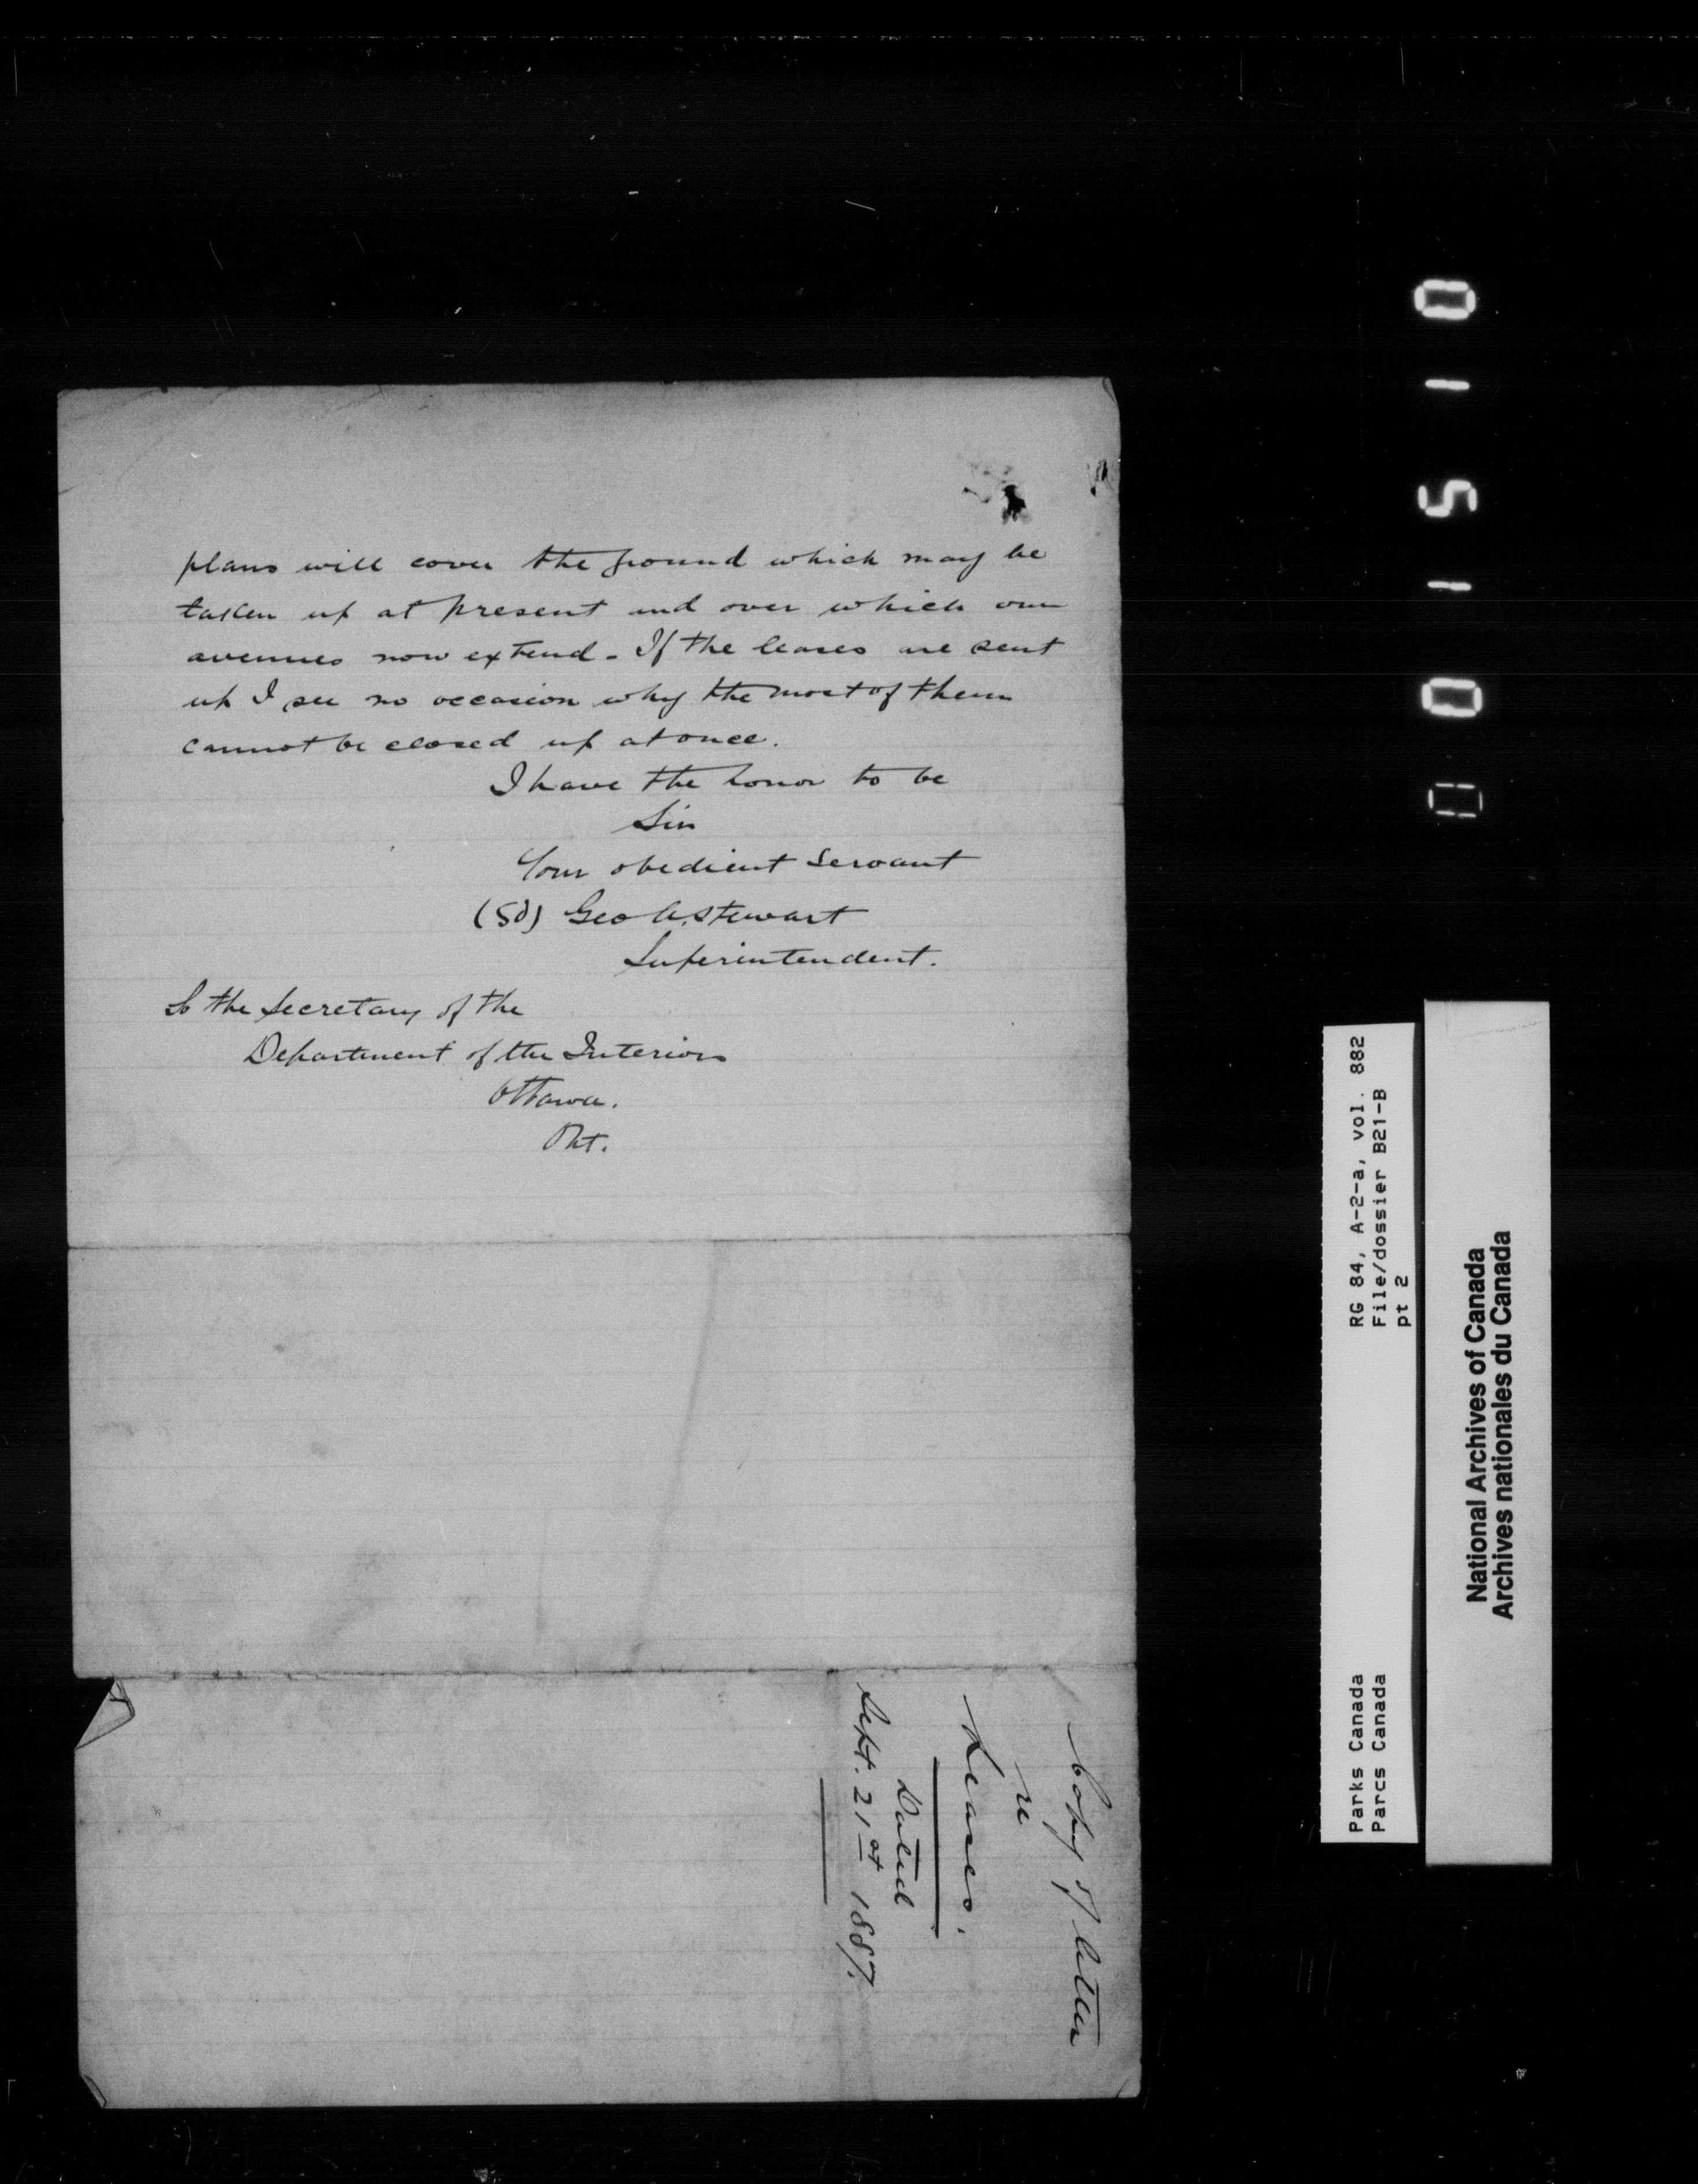 plans will cover the ground which may be
taken up at present and over which our
avenues now extend - If the leases are sent
up I see no occasion why the most of them
cannot be closed up at once.
I have the honor to be
Sir
Your obedient Servant
(Sd) Geo A. Stewart
Superintendent.
To the Secretary of the
Department of the Interior
Ottawa.
Ont.
Copy of letter
re
Leases.
Dated
Sept. 21st 1887.
0 1 5 1 0 0
RG 84, A-2-a, vol. 882
File/dossier B21-B
pt 2
Parks Canada
Parcs Canada
National Archives of Canada
Archives nationales du Canada